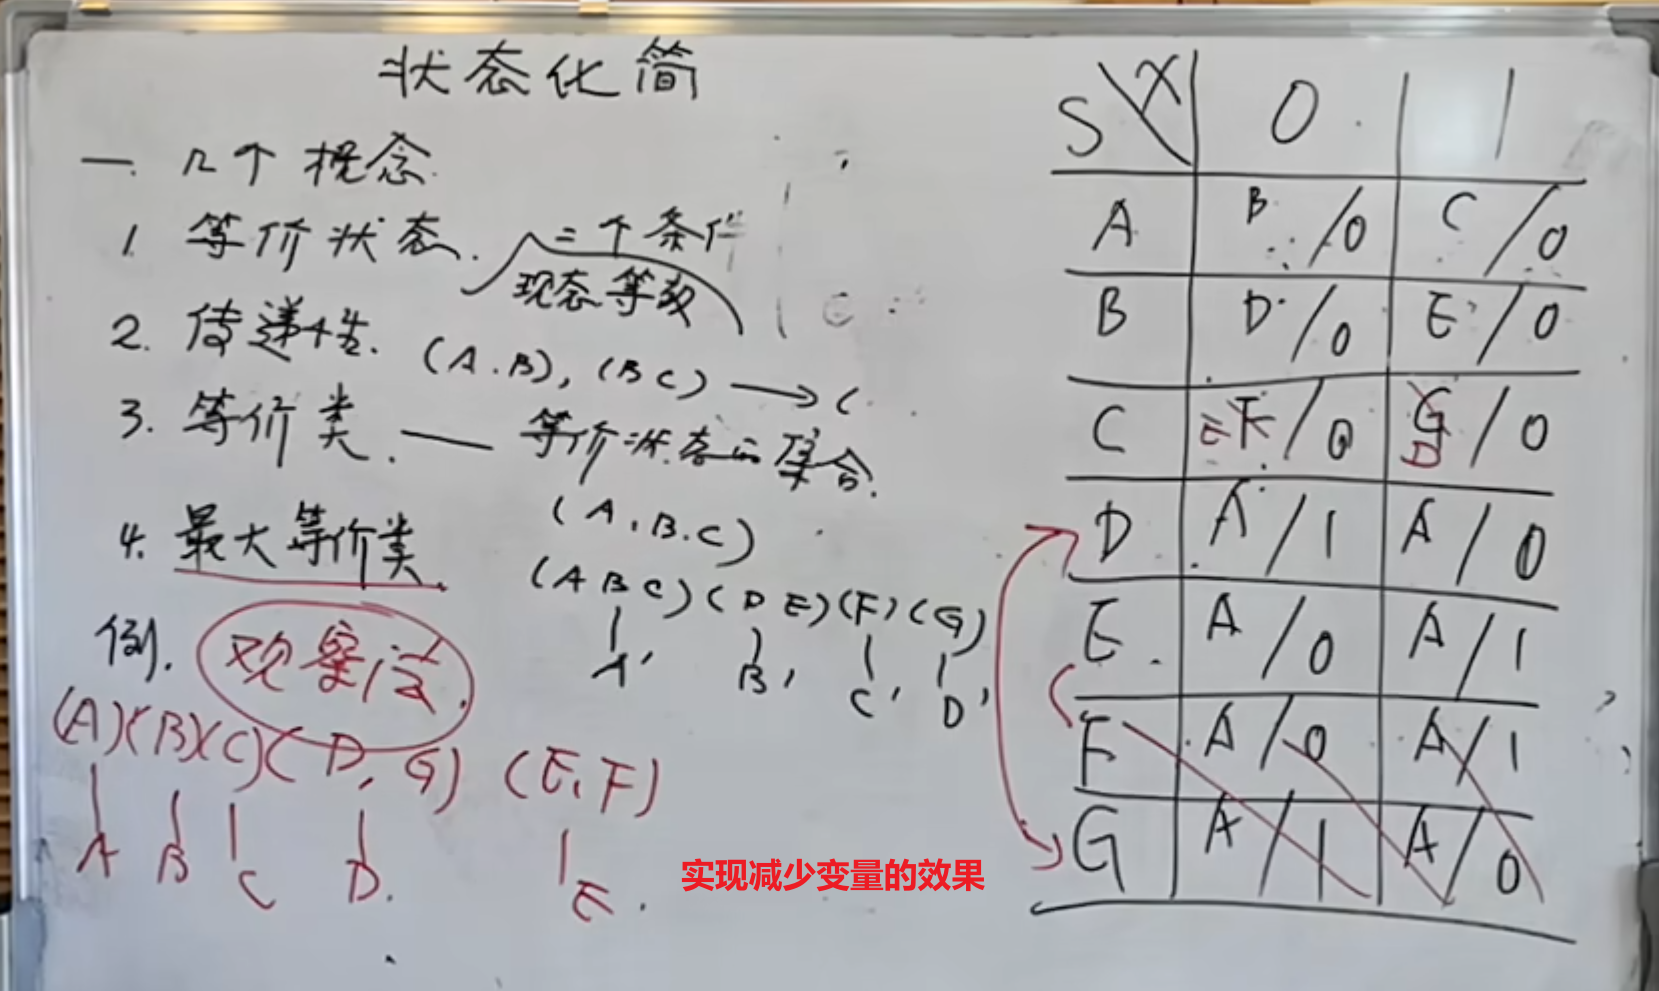 状态化简
一. 几个概念.
1. 等价状态. 二个条件
现态等效
2. 传递性. (A.B), (BC) → (
3. 等价类. — 等价状态的集合.
(A.B.C)
4. 最大等价类.
(ABC)(DE)(F)(G)
A' B' C' D'
例. 观察法.
(A)(B)(C)(D,G) (E,F)
A B C D. E.
实现减少变量的效果
S X 0 1
A B/0 C/0
B D/0 E/0
C E F/0 G D/0
D A/1 A/0
E A/0 A/1
F A/0 A/1
G A/1 A/0